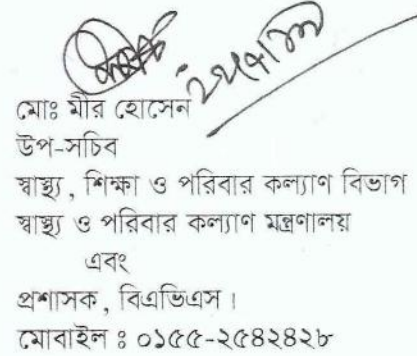 মোঃ মীর হোসেন
উপ-সচিব
স্বাস্থ্য, শিক্ষা ও পরিবার কল্যাণ বিভাগ
স্বাস্থ্য ও পরিবার কল্যাণ মন্ত্রণালয়
এবং
প্রশাসক, বিএভিএস।
মোবাইল ঃ ০১৫৫-২৫৪২৪২৮